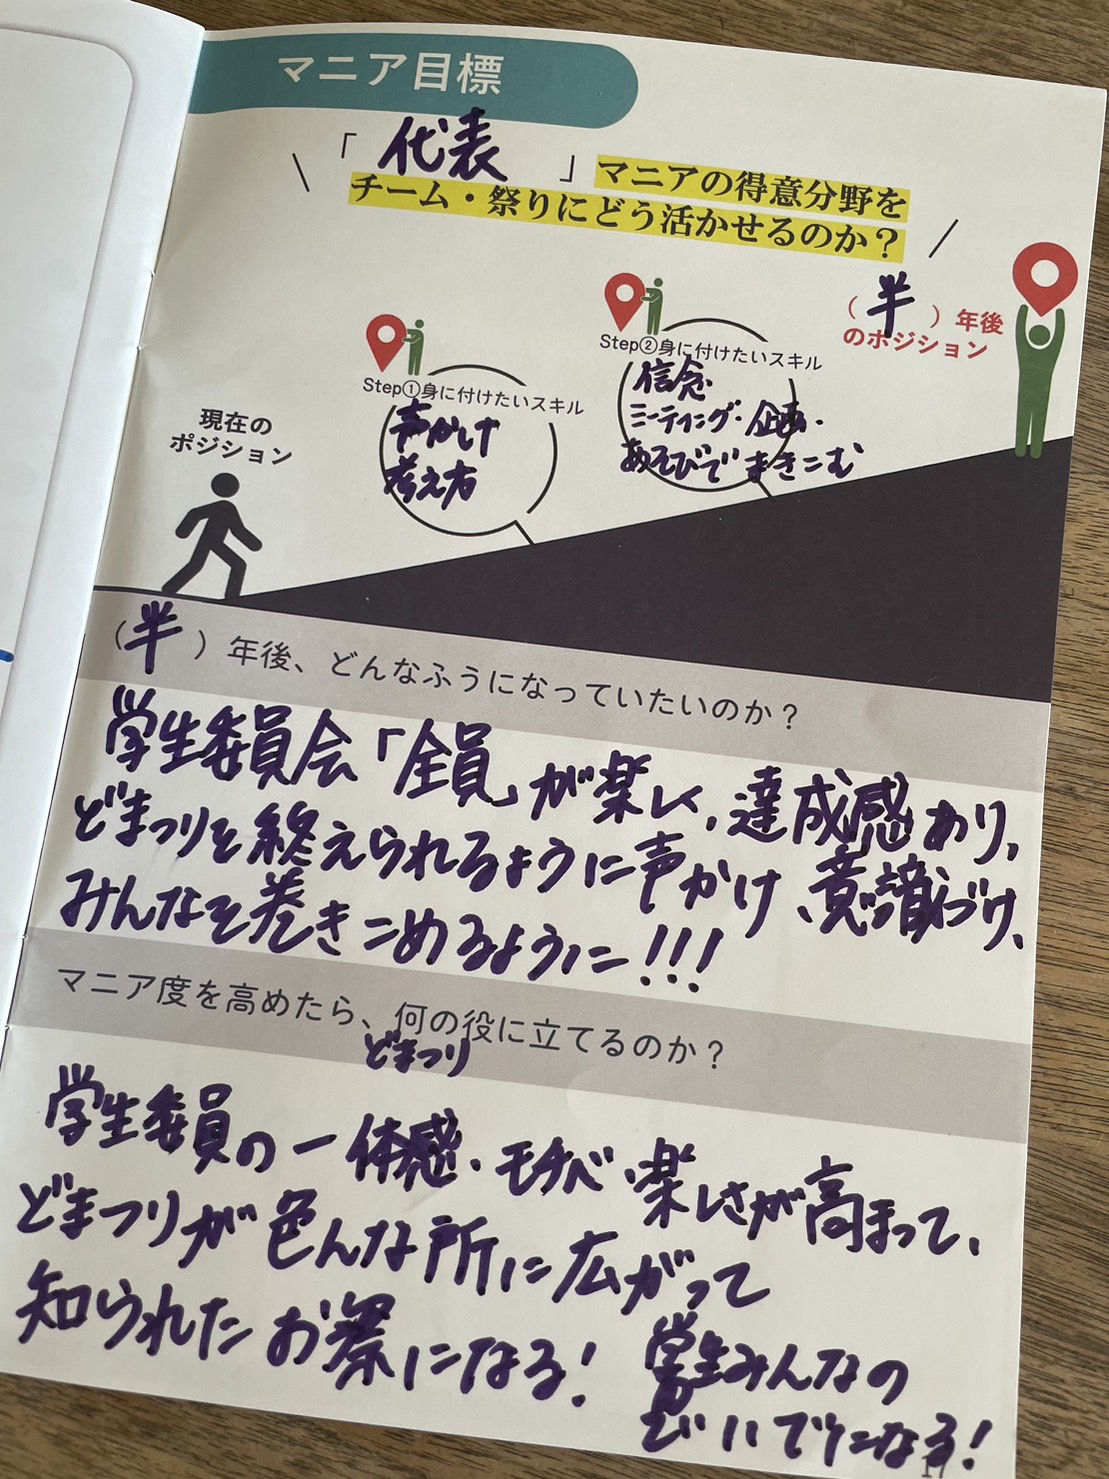 マニア目標
「代表」マニアの得意分野を
チーム・祭りにどう活かせるのか？
（半）年後
のポジション
Step②身に付けたいスキル
信念・
ミーティング・企画・
あそびで まきこむ
Step①身に付けたいスキル
声かけ
考え方
現在の
ポジション
（半）年後、どんなふうになっていたいのか？
学生委員会「全員」が楽しく、達成感あり、
どまつりを終えられるように声かけ、意識づけ、
みんなを巻きこめるように!!!
マニア度を高めたら、何の役に立てるのか？
どまつり
学生委員の一体感・モチベ・楽しさが高まって、
どまつりが色んな所に広がって
知られたお祭になる!
学生みんなの
になる!
17